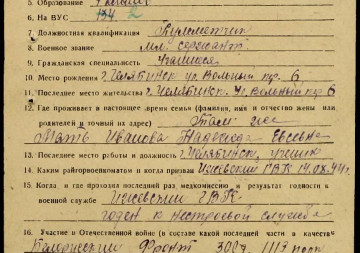 5. Образование 7 классов
6. На ВУС 134
7. Должностная квалификация Пулеметчик
8. Военное звание мл. сержант
9. Гражданская специальность Учащися
10. Место рождения г. Челябинск ул. Вольный пр. 6
11. Последнее место жительства г. Челябинск, ул. Вольный пр 6
12. Где проживает в настоящее время семья (фамилия, имя и отчество жены или
родителей и точный их адрес) Там же
Мать Иванова Надежда Евсеевна
13. Последнее место работы и должность г. Челябинск, ученик
14. Каким райгорвоенкоматом и когда призван РВК 14.08.44 г.
15. Когда и где проходил последний раз медкомиссию и результат годности к
военной службе ГВК
годен к нестроевой службе
16. Участие в Отечественной войне (в составе какой последней части в качестве
Белорусский Фронт 1117 полк